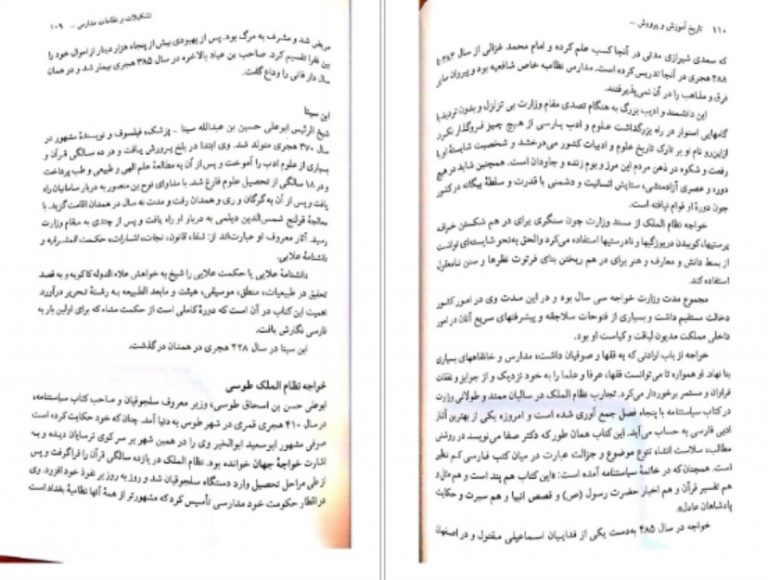 تشکیلات و نظامات مدارس ... ۱۰۹
مریض شد و مشرف به مرگ بود. پس از بهبودی بیش از پنجاه هزار دینار از اموال خود را
بین فقرا تقسیم کرد. صاحب بن عباد بالاخره در سال ۳۸۵ هجری بیمار شد و در همان
سال دار فانی را وداع گفت.
ابن سینا
شیخ الرئیس ابوعلی حسین بن عبدالله سینا .. پزشک، فیلسوف و نویسندهٔ مشهور در
سال ۳۷۰ هجری متولد شد. وی ابتدا در بلخ پرورش یافت و در ده سالگی قرآن و
بسیاری از علوم ادب را آموخت و پس از آن به مطالعهٔ علم الهی و طبیعی و طب پرداخت
و در ۱۸ سالگی از تحصیل علوم فارغ شد. با مداوای نوح بن منصور به دربار سامانیان راه
یافت و پس از آن به گرگان و ری و همدان رفت و مدت نه سال در همدان اقامت گزید. با
معالجهٔ قولنج شمس‌الدین دیلمی به دربار او راه یافت و پس از چندی به مقام وزارت
رسید. آثار معروف او عبارت‌اند از: شفاء، قانون، نجات، اشارات، حکمت المشرقیه و
دانشنامهٔ علایی.
دانشنامهٔ علایی یا حکمت علایی را شیخ به خواهش علاء الدوله کاکویه و به قصد
تحقیق در طبیعیات، منطق، موسیقی، هیئت و مابعد الطبیعه به رشتهٔ تحریر درآورد.
اهمیت این کتاب در آن است که دورهٔ کاملی از حکمت مشاء که برای اولین بار به
فارسی نگارش یافت.
ابن سینا در سال ۴۲۸ هجری در همدان درگذشت.
خواجه نظام الملک طوسی
ابوعلی حسن بن اسحاق طوسی، وزیر معروف سلجوقیان و صاحب کتاب سیاستنامه،
در سال ۴۱۰ هجری قمری در شهر طوس به دنیا آمد. چنان که خود حکایت کرده است
صوفی مشهور ابوسعید ابوالخیر وی را در همین شهر بر سر کوی ترسایان دیده و به
اشارت خواجهٔ جهان خوانده بود. نظام الملک در یازده سالگی قرآن را فراگرفت و پس
از طی مراحل تحصیل وارد دستگاه سلجوقیان شد و روز به روز بر نفوذ خود افزود. وی
در اقطار حکومت خود مدارسی تأسیس کرد که مشهورتر از همهٔ آنها نظامیهٔ بغداد است
۱۱۰ تاریخ آموزش و پرورش ...
که سعدی شیرازی مدتی در آنجا کسب علم کرده و امام محمد غزالی از سال ۴۸۴ تا
۴۸۸ هجری در آنجا تدریس کرده است. مدارس نظامیه خاص شافعیه بود و پیروان سایر
فرق و مذاهب را در آن نمی‌پذیرفتند.
این دانشمند و ادیب بزرگ به هنگام تصدی مقام وزارت بی تزلزل و بدون تردید با
گامهایی استوار در راه بزرگداشت علوم و ادب پارسی از هیچ چیز فروگذار نکرد
ازاین‌رو نام او بر تارک تاریخ علوم و ادبیات کشور می‌درخشد و شخصیت شایستهٔ او با
رفعت و شکوه در ذهن مردم این مرز و بوم زنده و جاودان است. همچنین شاید در هیچ
دوره و عصری آزادمنشی، ستایش انسانیت و دشمنی با قدرت و سلطهٔ بیگانه در کشور
چون دورهٔ او قوام نیافته است.
خواجه نظام الملک از مسند وزارت چون سنگری برای در هم شکستن خرافه
پرستیها، کوبیدن دریوزگیها و نادرستیها استفاده می‌کرد والحق به‌نحو شایسته‌ای توانست
از بسط دانش و معارف و هنر برای در هم ریختن بنای فرتوت نظرها و سنن نامعقول
استفاده کند.
مجموع مدت وزارت خواجه سی سال بود و در این مدت وی در امور کشور
دخالت مستقیم داشت و بسیاری از فتوحات سلاجقه و پیشرفتهای سریع آنان در امور
داخلی مملکت مدیون لیاقت و کیاست او بود.
خواجه از باب ارادتی که به فقها و صوفیان داشت، مدارس و خانقاههای بسیاری
بنا نهاد. او همواره تا می‌توانست فقها، عرفا و علما را به خود نزدیک و از جوایز و نفقات
فراوان و مستمر برخوردار می‌کرد. تجارب نظام الملک در سالیان ممتد و طولانی وزارت
در کتاب سیاستنامه با پنجاه فصل جمع آوری شده است و امروزه یکی از بهترین آثار
ادبی فارسی به حساب می‌آید. این کتاب همان طور که دکتر صفا می‌نویسد در روشنی
مطالب، سلاست انشاء، تنوع موضوع و جزالت عبارت در میان کتب فارسی کم نظیر
است. همچنان که در خاتمهٔ سیاستنامه آمده است: «این کتاب هم پند است و هم مثل و
هم تفسیر قرآن و هم اخبار حضرت رسول (ص) و قصص انبیا و هم سیرت و حکایت
پادشاهان عادل».
خواجه در سال ۴۸۵ به‌دست یکی از فداییان اسماعیلی مقتول و در اصفهان